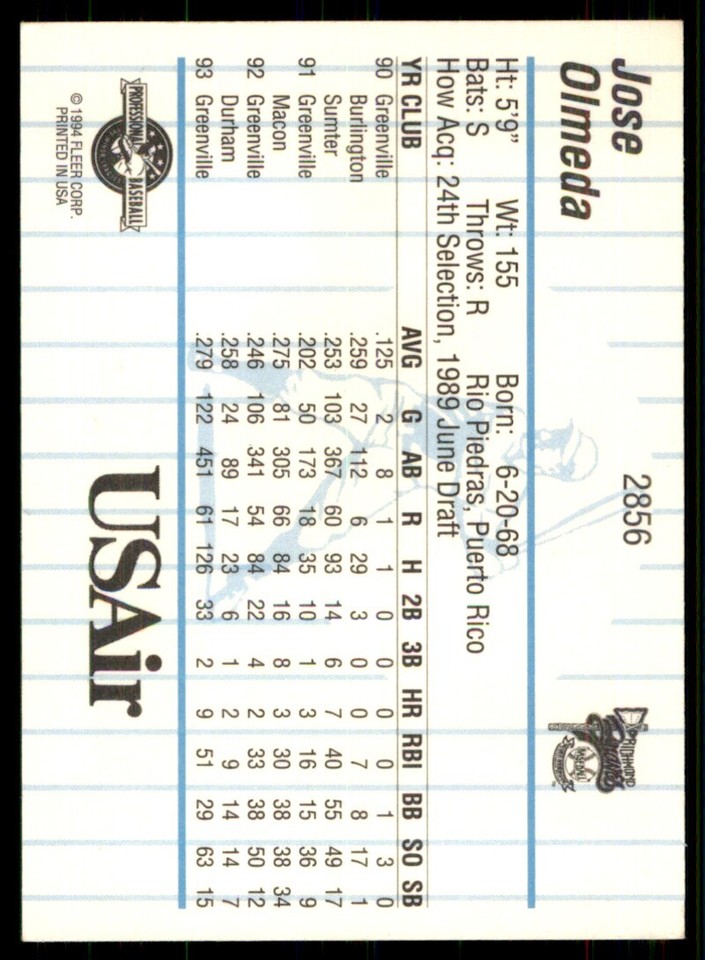 Jose
Olmeda
2856
RICHMOND
Braves
Ht: 5'9" Wt: 155 Born: 6-20-68
Bats: S Throws: R Rio Piedras, Puerto Rico
How Acq: 24th Selection, 1989 June Draft
YR CLUB AVG G AB R H 2B 3B HR RBI BB SO SB
90 Greenville .125 2 8 1 1 0 0 0 0 1 3 0
Burlington .259 27 112 6 29 3 0 0 7 8 17 1
Sumter .253 103 367 60 93 14 6 7 40 55 49 17
91 Greenville .202 50 173 18 35 10 1 3 16 15 36 9
Macon .275 81 305 66 84 16 8 3 30 38 38 34
92 Greenville .246 106 341 54 84 22 4 2 33 38 50 12
Durham .258 24 89 17 23 6 1 2 9 14 14 7
93 Greenville .279 122 451 61 126 33 2 9 51 29 63 15
PROFESSIONAL BASEBALL
© 1994 FLEER CORP.
PRINTED IN USA
USAir